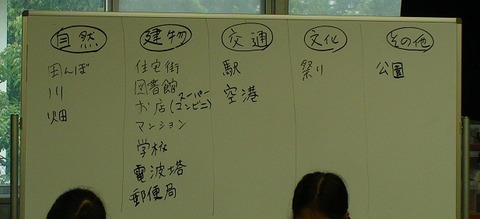 自然
田んぼ
川
畑
建物
住宅街
図書館
お店(スーパー
コンビニ)
マンション
学校
電波塔
郵便局
交通
駅
空港
文化
祭り
その他
公園